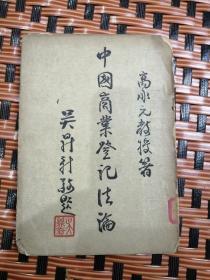 高承元教授著
中國商業登記法論
吳鼎新題